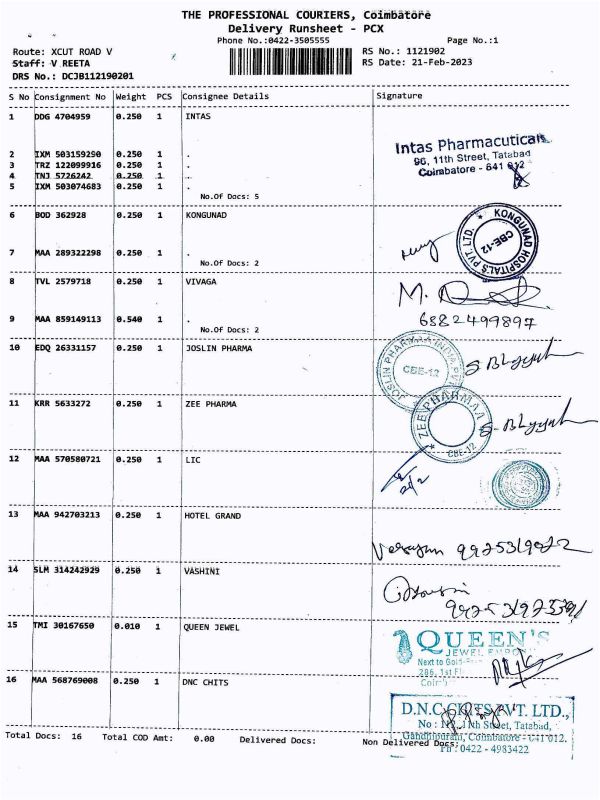 THE PROFESSIONAL COURIERS, Coimbatore
Delivery Runsheet - PCX
Phone No.:0422-3505555 Page No.:1
Route: XCUT ROAD V RS No.: 1121902
Staff: V REETA RS Date: 21-Feb-2023
DRS No.: DCJB112190201
S No Consignment No Weight PCS Consignee Details Signature
1 DDG 4704959 0.250 1 INTAS
Intas Pharmacuticals
96, 11th Street, Tatabad
Coimbatore - 641 012
2 IXM 503159290 0.250 1 .
3 TRZ 122099916 0.250 1 .
4 TNJ 5726242 0.250 1 .
5 IXM 503074683 0.250 1 .
No.Of Docs: 5
6 BOD 362928 0.250 1 KONGUNAD
KONGUNAD HOSPITALS PVT. LTD.
CBE-12
7 MAA 289322298 0.250 1 .
No.Of Docs: 2
8 TVL 2579718 0.250 1 VIVAGA
M.
9 MAA 859149113 0.540 1 .
6882499897
No.Of Docs: 2
10 EDQ 26331157 0.250 1 JOSLIN PHARMA
JOSLIN PHARMAA INDIA PVT
CBE-12
11 KRR 5633272 0.250 1 ZEE PHARMA
ZEE PHARMAA
CBE-12
12 MAA 570580721 0.250 1 LIC
13 MAA 942703213 0.250 1 HOTEL GRAND
14 SLM 314242929 0.250 1 VASHINI
15 TMI 30167650 0.010 1 QUEEN JEWEL
QUEEN'S
JEWEL EMPORI
Next to Gold
286, 1st Fl
16 MAA 568769008 0.250 1 DNC CHITS
D.N.C. CHITS PVT. LTD.,
No : 112, 11th Street, Tatabad,
Gandhipuram, Coimbatore - 641 012.
Ph : 0422 - 4983422
Total Docs: 16 Total COD Amt: 0.00 Delivered Docs: Non Delivered Docs: